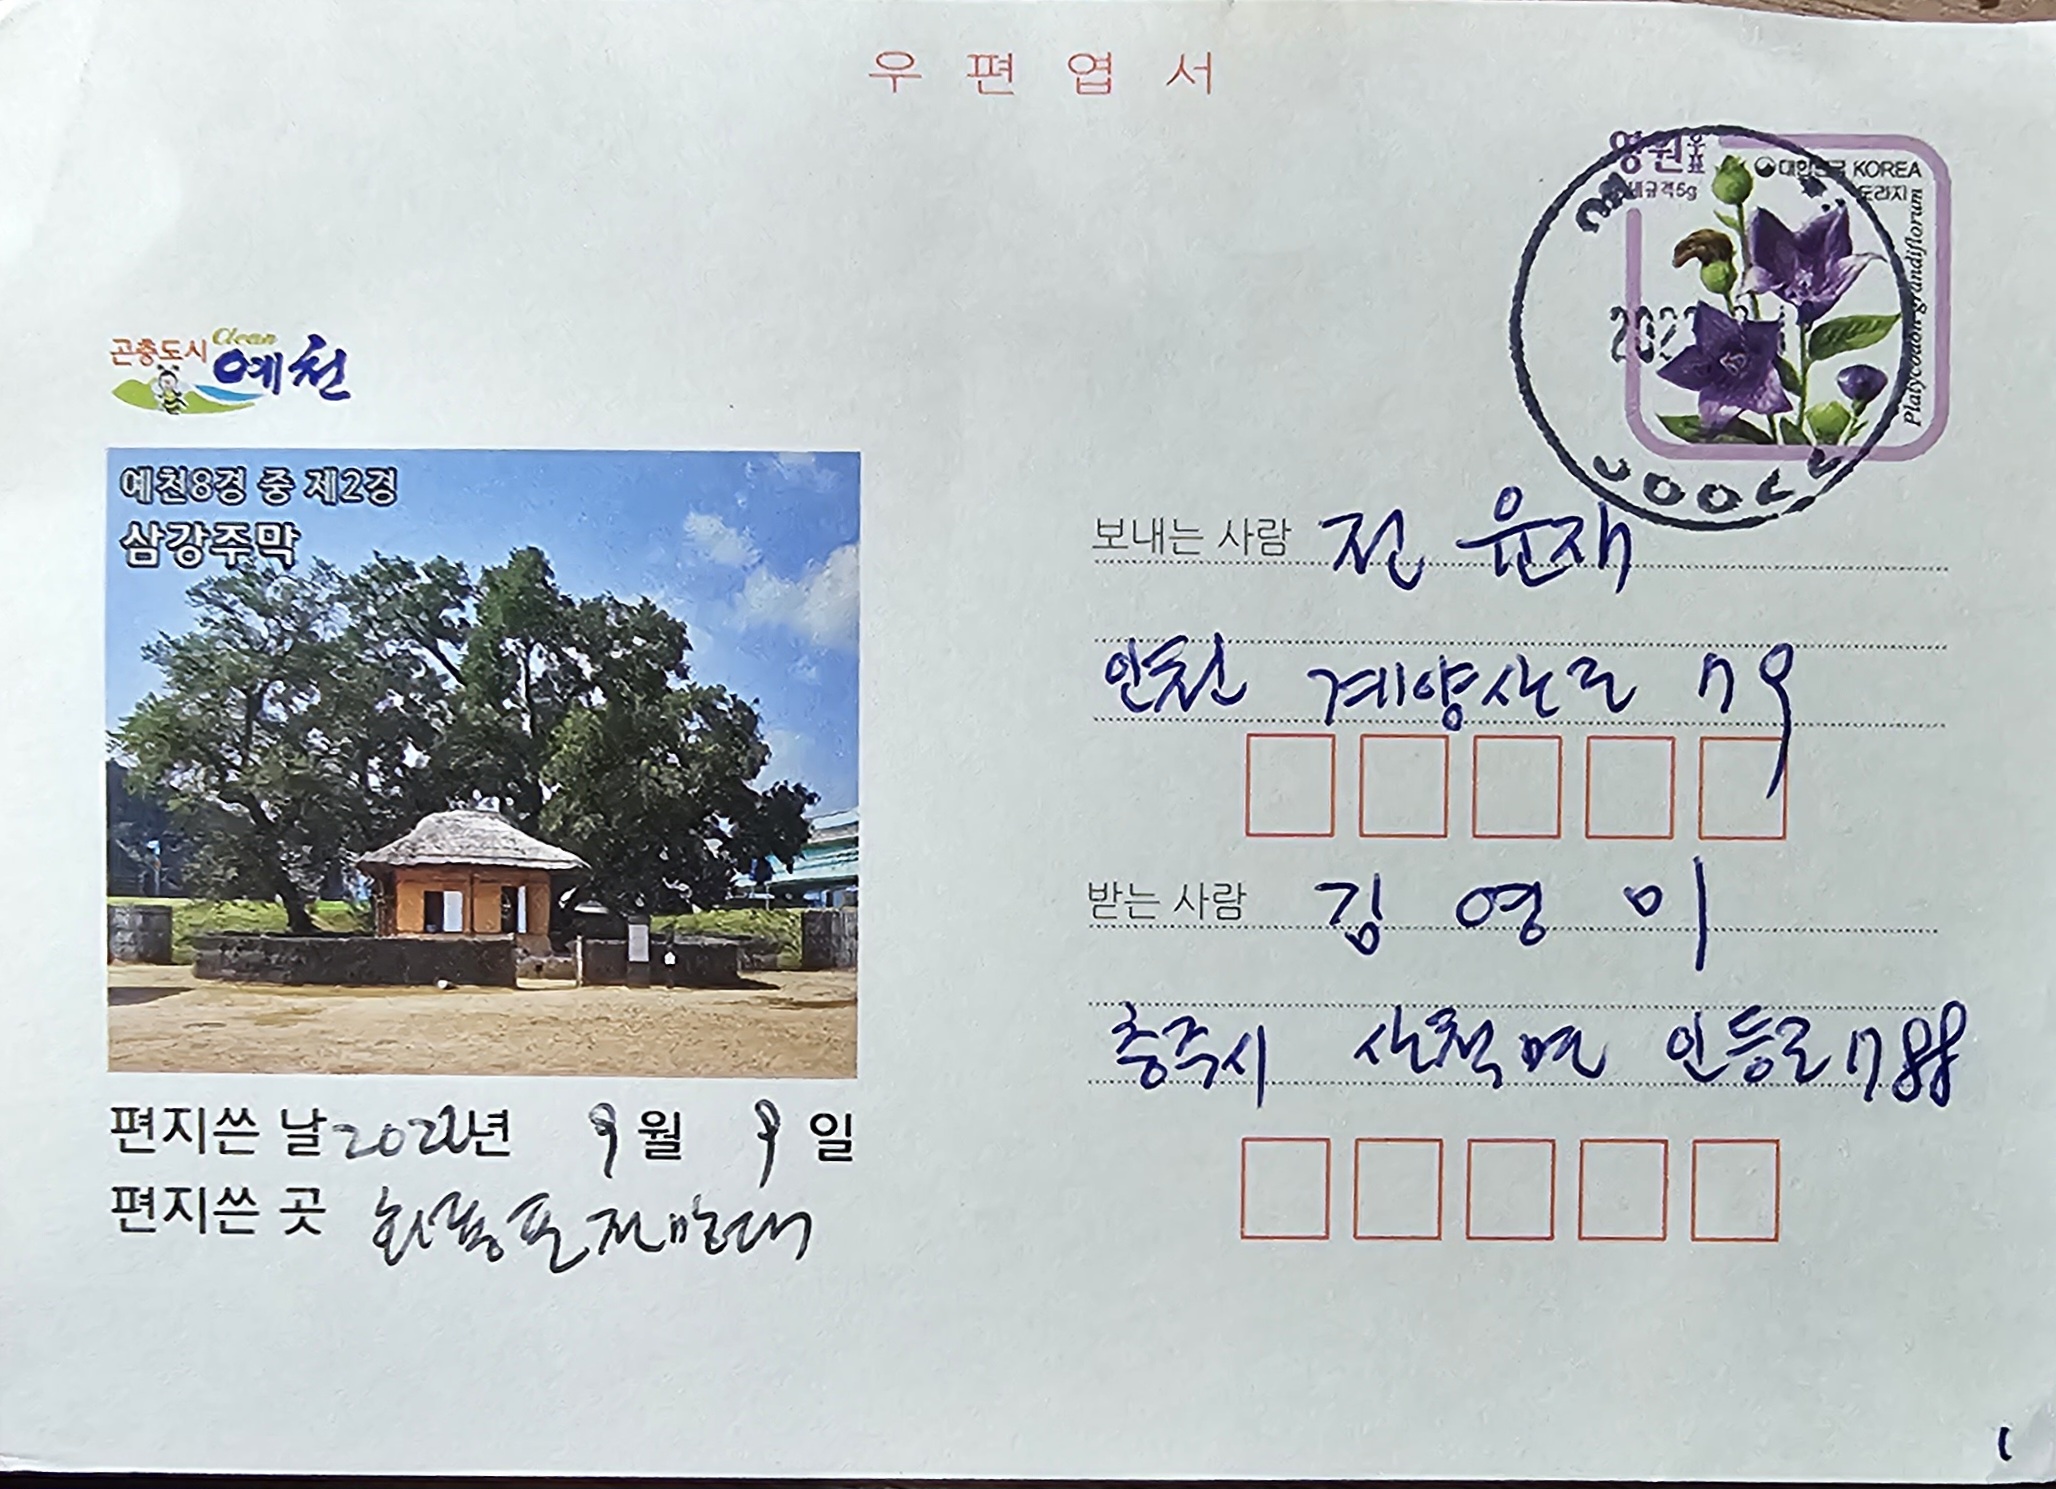 우편엽서
영원우표
대한민국 KOREA
규격5g
도라지
Platycodon grandiflorum
곤충도시 Clean 예천
예천8경 중 제2경
삼강주막
보내는 사람 전윤재
인천 계양산로 79
받는 사람 김영미
충주시 산척면 인등로 788
편지쓴 날 2022년 9월 9일
편지쓴 곳 회룡포전망대
1